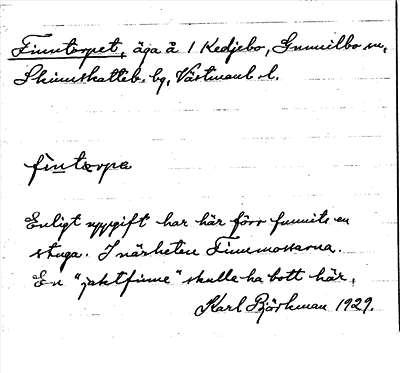 Finntorpet, äga å 1 Kedjebo, Gunnilbo sn,
Skinnskatteb. bg, Västmanl. l.
fintorpa
Enligt uppgift har här förr funnits en
stuga. I närheten Finnmossarna.
En "jaktfinne" skulle ha bott här.
Karl Björkman 1929.